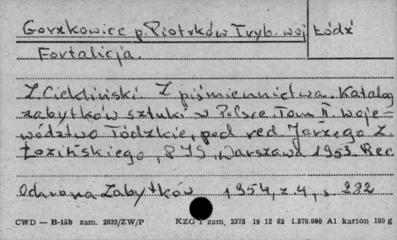 Gorzkowice p. Piotrków Tryb. woj Łódź
Fortalicja.
Z Ciekliński Z piśmiennictwa. Katalog
zabytków sztuki w Polsce Tom II. Woje-
wództwo Łódzkie, pod red Jerzego Z.
Łozińskiego, PIS, Warszawa 1953 Rec
Ochrona Zabytków 1954, z 4, s. 292
CWD — B-15b zam. 2832/ZW/P KZG 1 zam. 2375 19 12 62 1.570.000 A1 karton 180 g